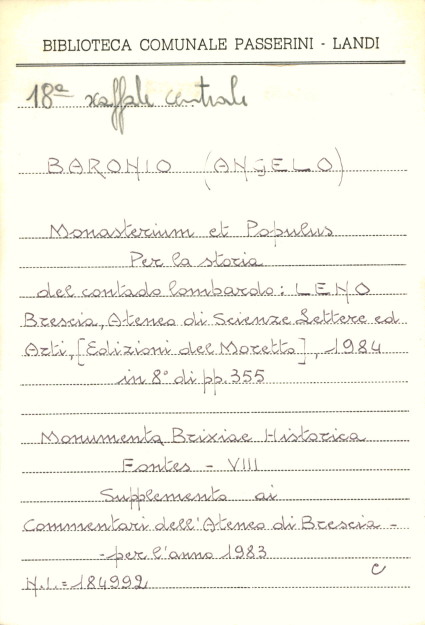 BIBLIOTECA COMUNALE PASSERINI - LANDI
18ª xaffale centrale
BARONIO (ANGELO)
Monasterium et Populus
Per la storia
del contado lombardo: LENO
Brescia, Ateneo di Scienze Lettere ed
Arti, [Edizioni del Moretto], 1984
in 8° di pp. 355
Monumenta Brixiae Historica
Fontes - VIII
Supplemento ai
Commentari dell'Ateneo di Brescia -
- per l'anno 1983
N.I. = 184992
C